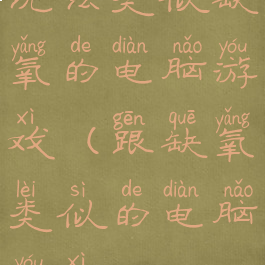 况法类似缺
yǎng de diàn nǎo yóu
氧的电脑游
xì gēn quē yǎng
戏（跟缺氧
lèi sì de diàn nǎo
类似的电脑
yóu xì